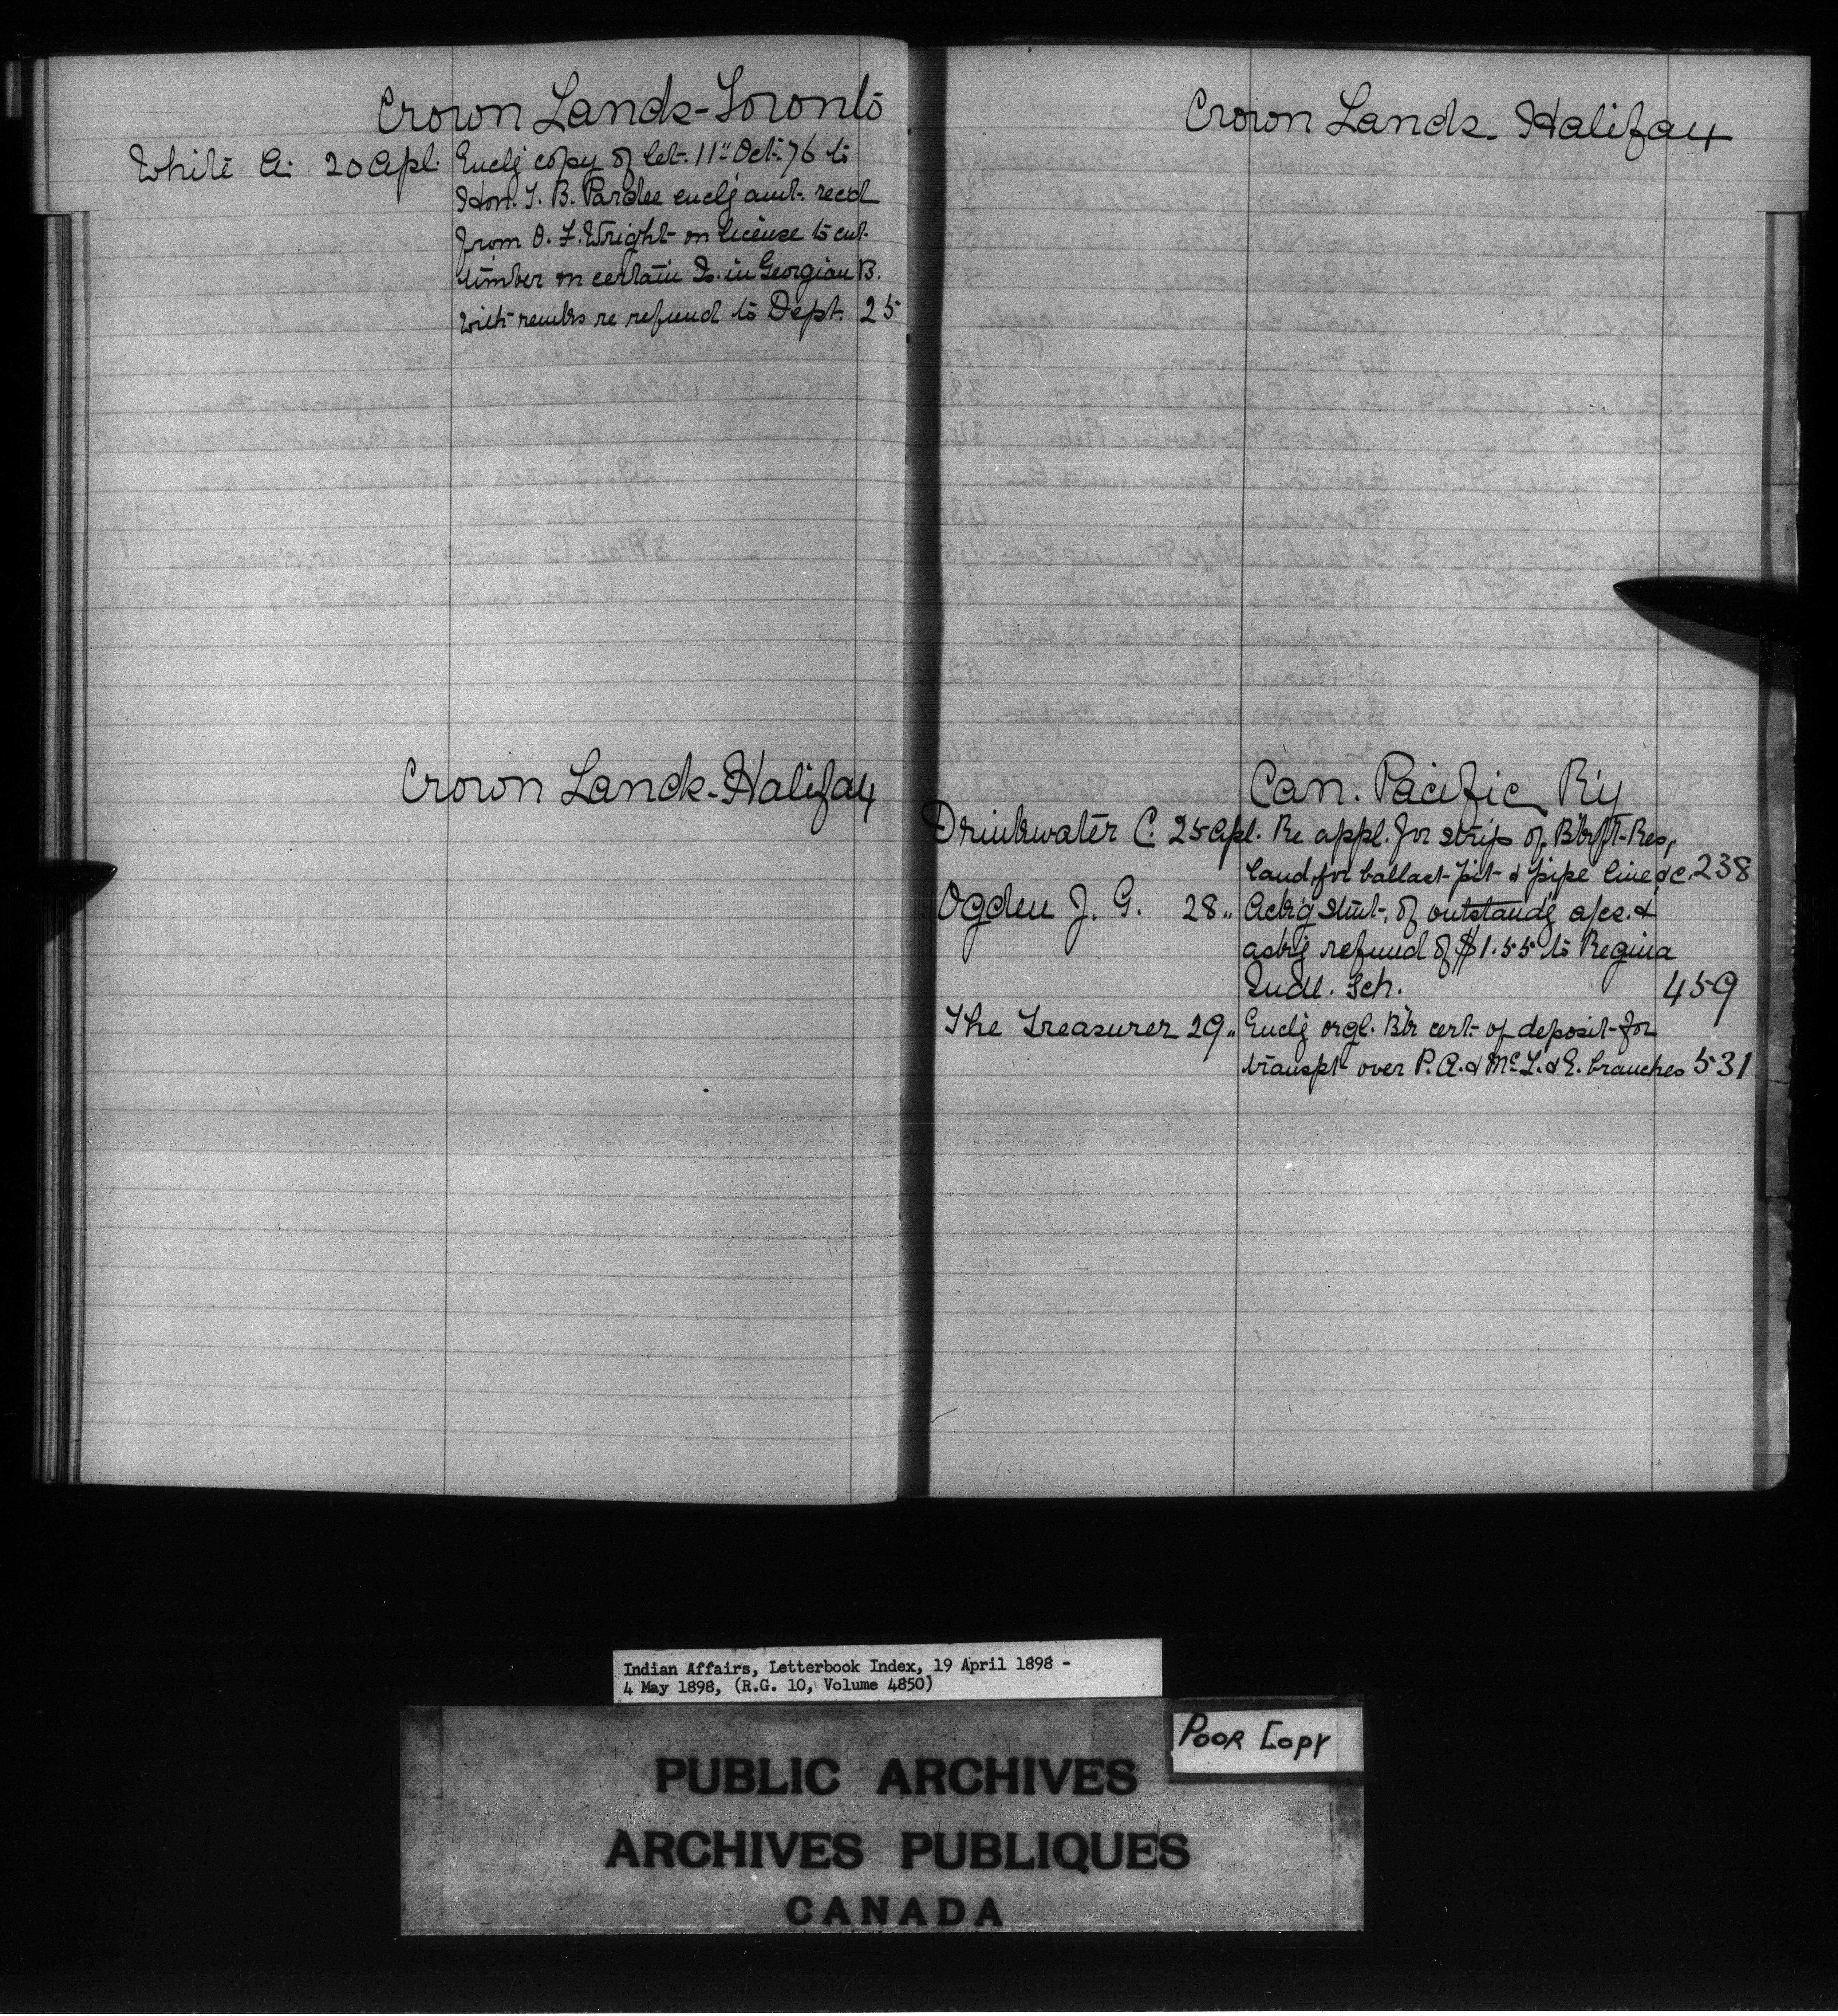 Crown Lands-Toronto
White A. 20 Apl. Enclg copy of let. 11" Oct. 76 to
Hon. T. B. Pardee enclg amt. recd
from O. F. Wright on license to cut
timber on certain Is. in Georgian B.
with remks re refund to Dept. 25
Crown Lands-Halifax
Crown Lands. Halifax
Can. Pacific Ry
Drinkwater C. 25 Apl. Re appl. for strip of Blkft. Res.
land, for ballast-pit & pipe line &c. 238
Ogden J. G. 28 " Ackg stmt. of outstandg accs. &
askg refund of $1.55 to Regina
Indl. Sch. 459
The Treasurer 29 " Enclg orgl. Bk cert. of deposit for
transpt over P. A. & McL. & E. branches 531
Indian Affairs, Letterbook Index, 19 April 1898 -
4 May 1898, (R.G. 10, Volume 4850)
POOR COPY
PUBLIC ARCHIVES
ARCHIVES PUBLIQUES
CANADA